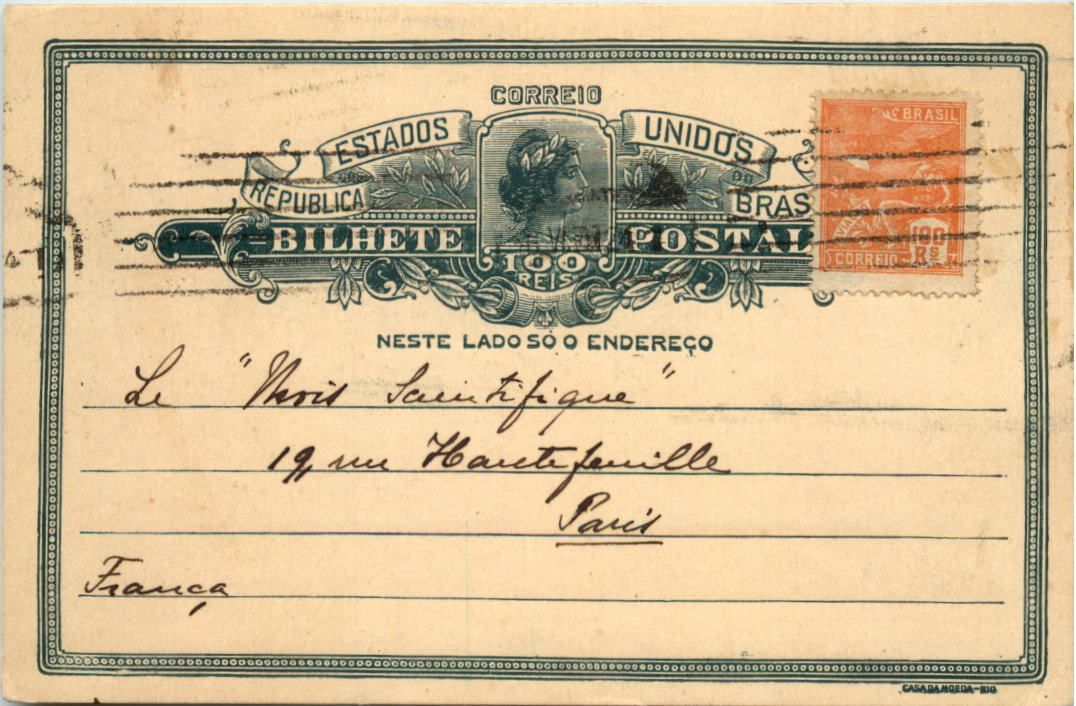 CORREIO
ESTADOS UNIDOS
REPUBLICA DO BRAS
BILHETE POSTAL
100
REIS
BRASIL
CORREIO
Rs
NESTE LADO SÓ O ENDEREÇO
Le "Mois Scientifique"
19, rue Hautefeuille
Paris
França
CASA DA MOEDA-RIO